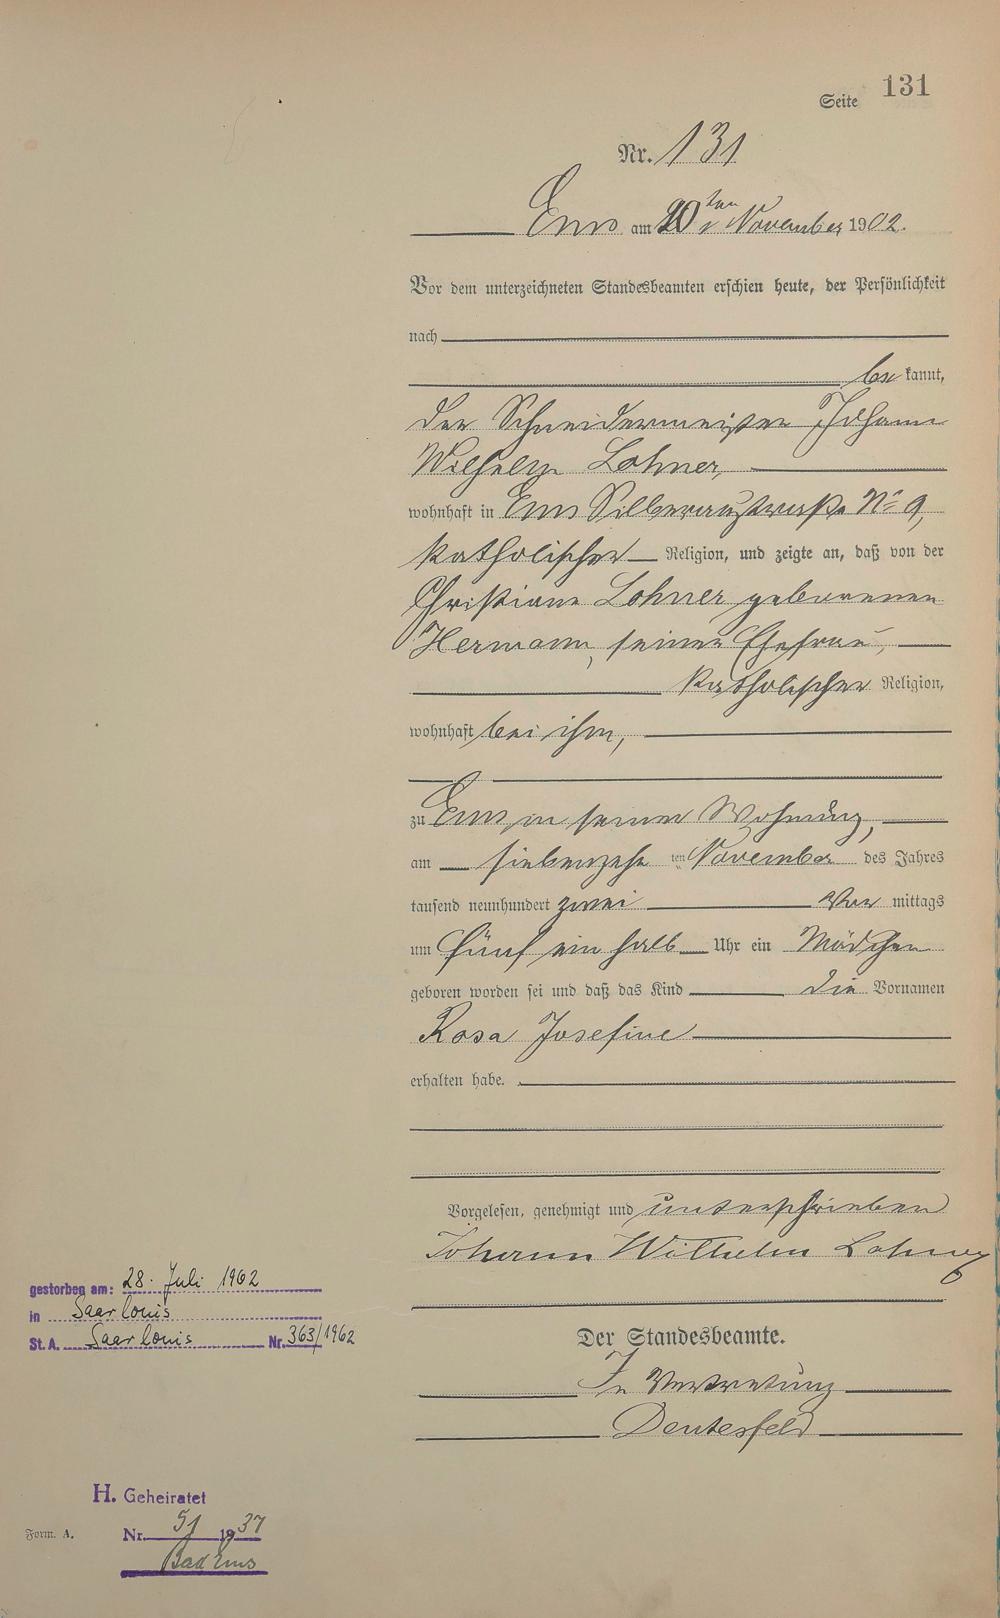 Seite 131
Nr. 131
Ems am 20ten November 1902.
Vor dem unterzeichneten Standesbeamten erschien heute, der Persönlichkeit
nach
bekannt,
der Schneidermeister Johann
Wilhelm Lohner,
wohnhaft in Ems Silberaustraße No 9,
katholischer Religion, und zeigte an, daß von der
Christiane Lohner geborenen
Hermann, seiner Ehefrau,
katholischer Religion,
wohnhaft bei ihm,
zu Ems in seiner Wohnung,
am siebenzehnten November des Jahres
tausend neunhundert zwei Vormittags
um fünf ein halb Uhr ein Mädchen
geboren worden sei und daß das Kind die Vornamen
Rosa Josefine
erhalten habe.
Vorgelesen, genehmigt und unterschrieben
Johann Wilhelm Lohner
Der Standesbeamte.
In Vertretung
gestorben am: 28. Juli 1962
in Saarlouis
St. A. Saarlouis Nr. 363/1962
H. Geheiratet
Nr. 51 1937
Bad Ems
Form. A.